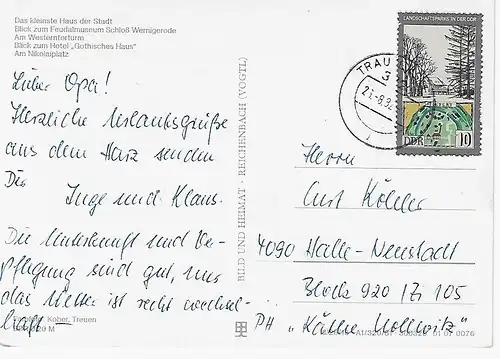 Das kleinste Haus der Stadt
Blick zum Feudalmuseum Schloß Wernigerode
Am Westerntorturm
Blick zum Hotel „Gothisches Haus“
Am Nikolaiplatz
Lieber Opa!
Herzliche Urlaubsgrüße
aus dem Harz senden
Dir
Inge und Klaus.
Die Unterkunft und Ver-
pflegung sind gut, nur
das Wetter ist recht wechsel-
haft –
Kober, Treuen
M
BILD UND HEIMAT · REICHENBACH (VOGTL)
LANDSCHAFTSPARKS IN DER DDR
DDR 10
TRAU
3
Herrn
Curt Köhler
4090 Halle-Neustadt
Block 920 / Zi 105
PH „Käthe Kollwitz“
A1/320/81
01 07 0076